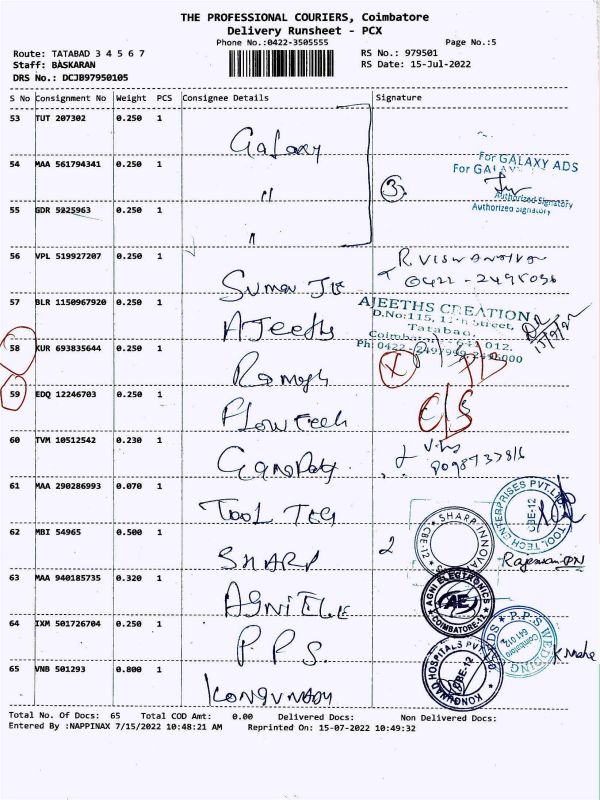 THE PROFESSIONAL COURIERS, Coimbatore
Delivery Runsheet - PCX
Phone No.:0422-3505555 Page No.:5
Route: TATABAD 3 4 5 6 7 RS No.: 979501
Staff: BASKARAN RS Date: 15-Jul-2022
DRS No.: DCJB97950105
S No Consignment No Weight PCS Consignee Details Signature
53 TUT 207302 0.250 1
Galaxy
For GALAXY ADS
54 MAA 561794341 0.250 1
For GALAXY ADS
"
3
Authorized Signatory
Authorized Signatory
55 GDR 5225963 0.250 1
"
56 VPL 519927207 0.250 1
0422-2495096
Suman
57 BLR 1150967920 0.250 1
AJEETHS CREATION
D.No:115, 11th Street,
Tatabad,
AJeeths
Coimbatore - 641 012.
58 KUR 693835644 0.250 1
Ph: 0422-2497999, 2496000
Ramesh
X
59 EDQ 12246703 0.250 1
Flowtech
C/S
60 TVM 10512542 0.230 1
Ganapathy
61 MAA 290286993 0.070 1
TOOL TECH ENTERPRISES PVT. LTD.
CBE-12
TOOL TECH
62 MBI 54965 0.500 1
2
SHARP INNOVA
CBE-12
SHARP
63 MAA 940185735 0.320 1
AGNI ELECTRONICS
AE
COIMBATORE-12
AGNI ELE
64 IXM 501726704 0.250 1
P.P.S WEDDING
Coimbatore
641 012
P.P.S.
65 VNB 501293 0.800 1
HOSPITALS PVT LTD
CBE-12
KONGUNADU
Total No. Of Docs: 65 Total COD Amt: 0.00 Delivered Docs: Non Delivered Docs:
Entered By :NAPPINAX 7/15/2022 10:48:21 AM Reprinted On: 15-07-2022 10:49:32